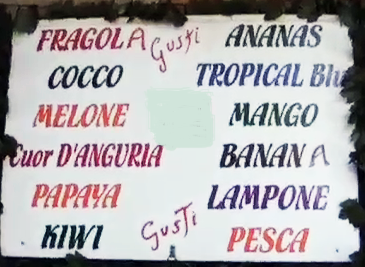 FRAGOLA Gusti ANANAS
COCCO TROPICAL Blu
MELONE MANGO
Cuor D'ANGURIA BANANA
PAPAYA LAMPONE
KIWI GusTi PESCA